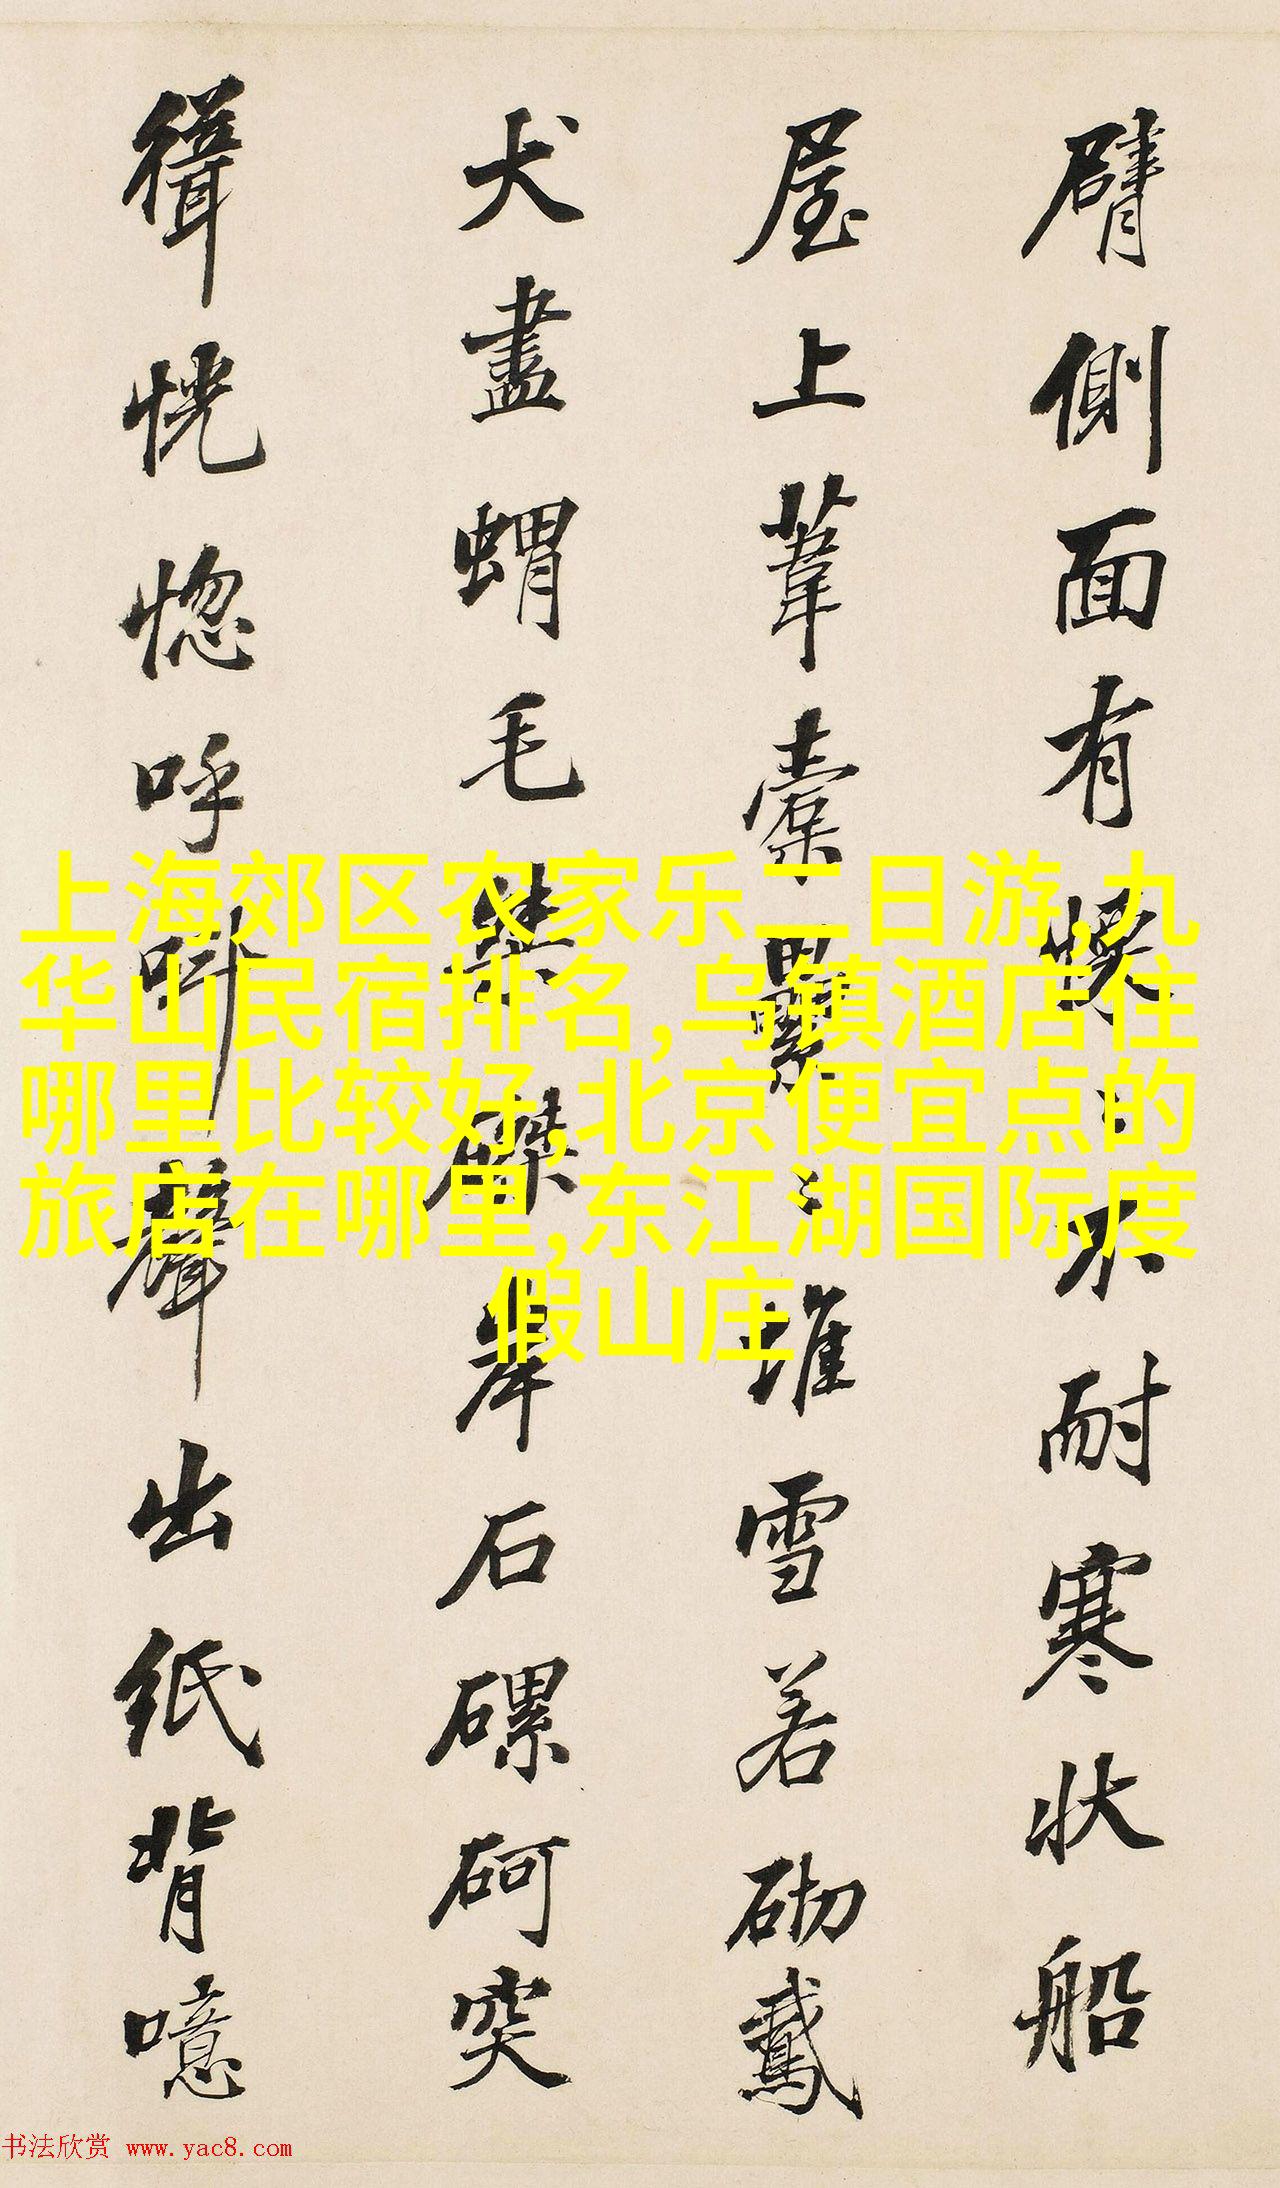 臂側面有慔〻不耐寒狀船
屋上葦橐纍〻堆雪若砌鳶
犬盡蝟毛桀磔举石磥砢突
緝恍惚呼叫聲出紙背噫
上海郊区农家乐二日游,九
华山民宿排名,乌镇酒店住
哪里比较好,北京便宜点的
旅店在哪里,东江湖国际度
假山庄
书法欣赏 www.yac8.com